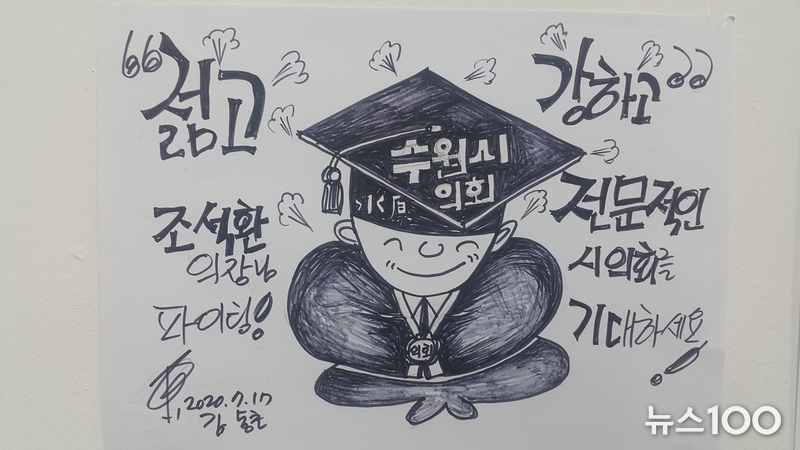 “젊고
강하고”
수원시
의회
조석환
의장님
파이팅!
전문적인
시의회를
기대하세요!
의회
2020.7.17
뉴스100